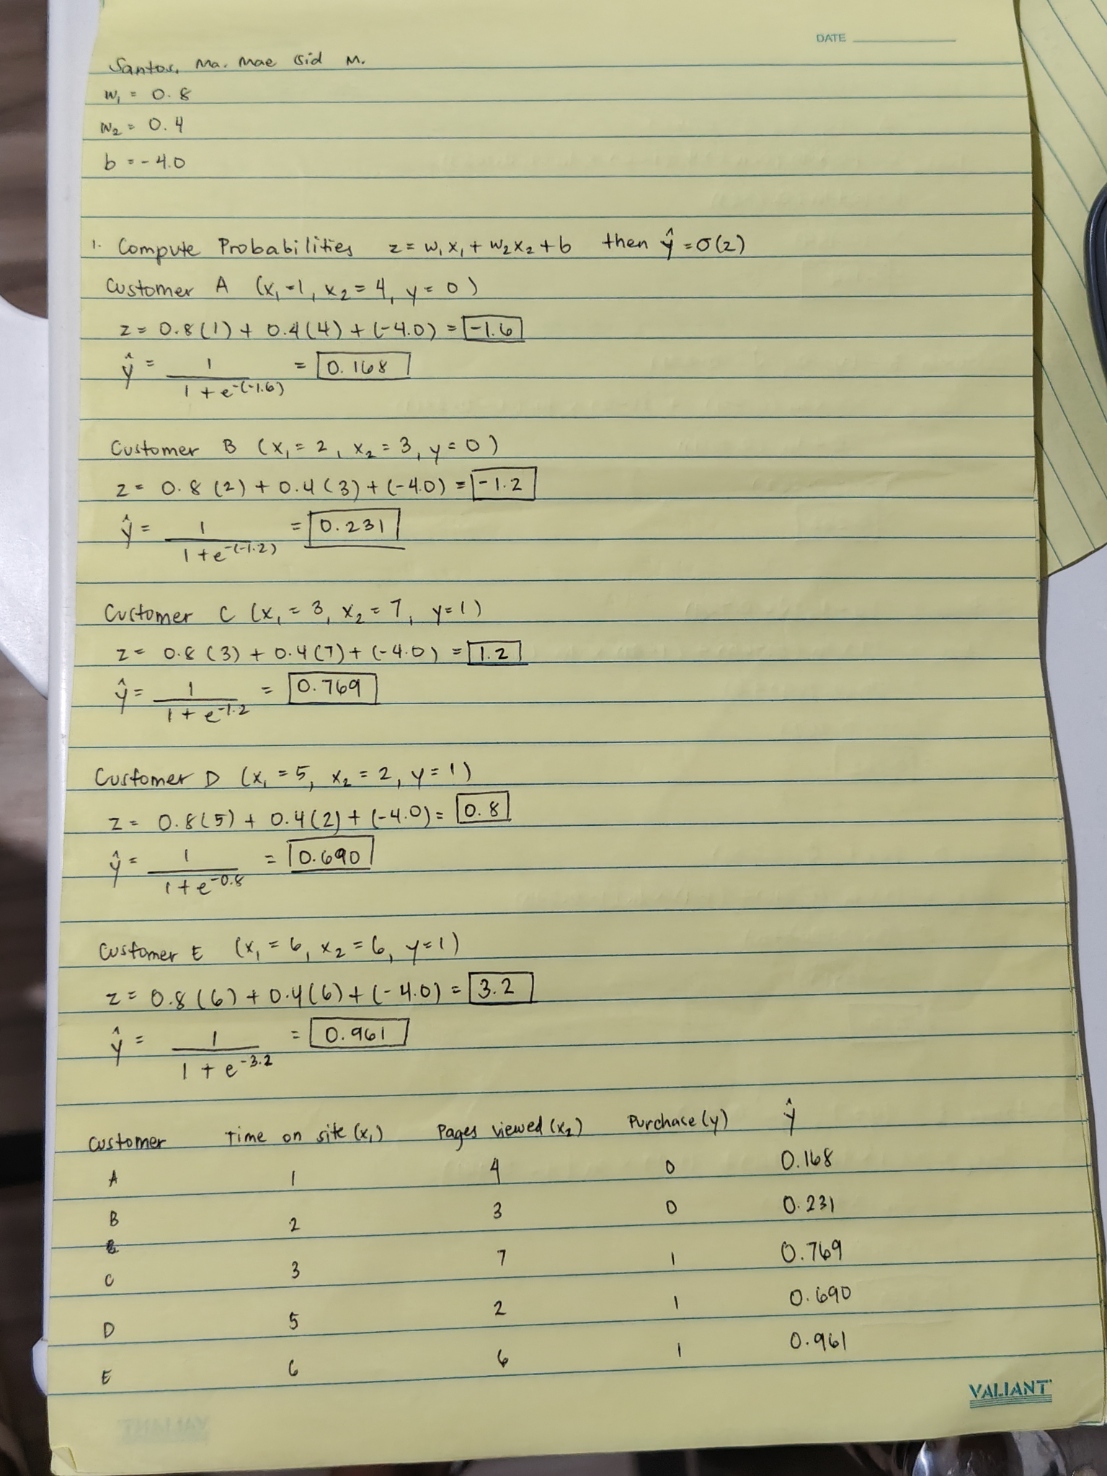 DATE
Santos, Ma. Mae Gid M.
w₁ = 0.8
w₂ = 0.4
b = -4.0
1. Compute Probabilities z = w₁x₁ + w₂x₂ + b then ŷ = σ(z)
Customer A (x₁=1, x₂ = 4, y = 0)
z = 0.8(1) + 0.4(4) + (-4.0) = -1.6
ŷ = 1 / 1 + e^-(-1.6) = 0.168
Customer B (x₁ = 2, x₂ = 3, y = 0)
z = 0.8(2) + 0.4(3) + (-4.0) = -1.2
ŷ = 1 / 1 + e^-(-1.2) = 0.231
Customer C (x₁ = 3, x₂ = 7, y=1)
z = 0.8(3) + 0.4(7) + (-4.0) = 1.2
ŷ = 1 / 1 + e^-1.2 = 0.769
Customer D (x₁ = 5, x₂ = 2, y = 1)
z = 0.8(5) + 0.4(2) + (-4.0) = 0.8
ŷ = 1 / 1 + e^-0.8 = 0.690
Customer E (x₁ = 6, x₂ = 6, y=1)
z = 0.8(6) + 0.4(6) + (-4.0) = 3.2
ŷ = 1 / 1 + e^-3.2 = 0.961
Customer Time on site (x₁) Pages viewed (x₂) Purchase (y) ŷ
A 1 4 0 0.168
B 2 3 0 0.231
C 3 7 1 0.769
D 5 2 1 0.690
E 6 6 1 0.961
VALIANT